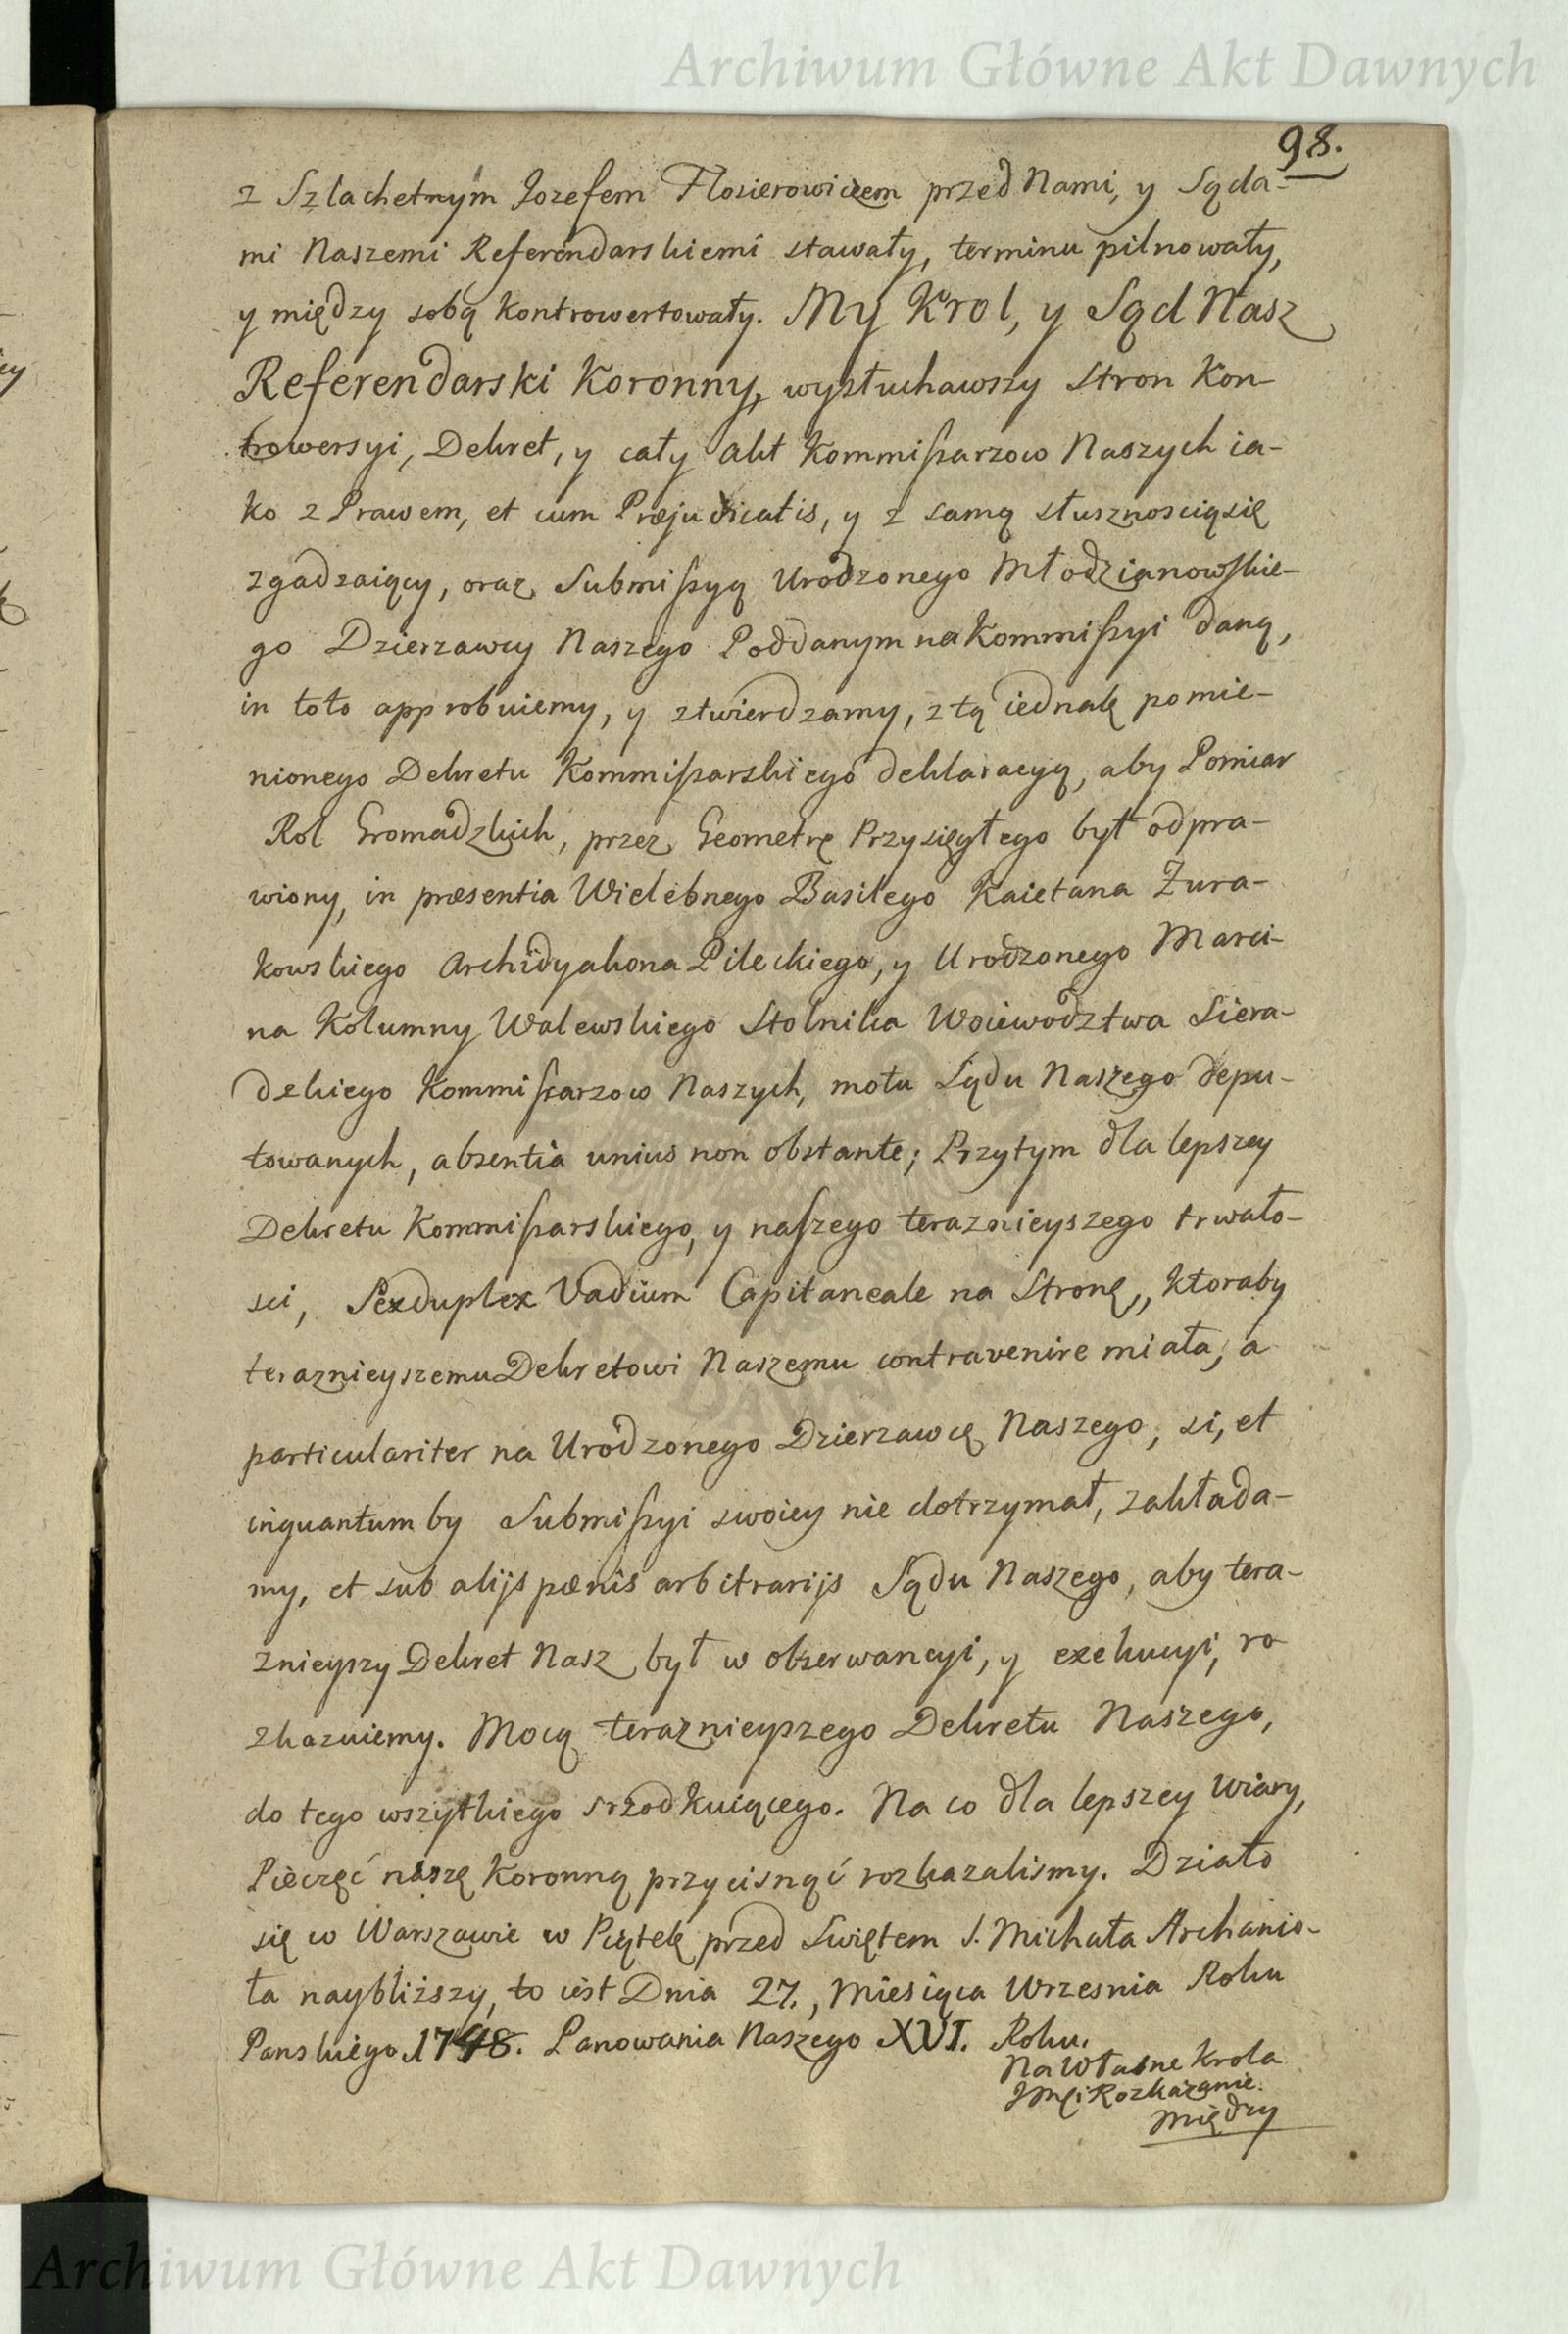 Archiwum Główne Akt Dawnych
98.
z Szlachetnym Jozefem Flosierowiczem przed Nami, y Sąda-
mi Naszemi Referendarskiemi stawały, terminu pilnowały,
y między sobą kontrowertowały. My Krol, y Sąd Nasz
Referendarski Koronny, wysłuchawszy Stron Kon-
trowersyi, Dekret, y cały akt Kommissarzow Naszych ia-
ko z Prawem, et cum Præjudicatis, y z samą słusznoscią się
zgadzaiący, oraz Submissyą Urodzonego Młodzianowskie-
go Dzierzawcy Naszego Poddanym na Kommissyi daną,
in toto approbuiemy, y ztwierdzamy, z tą iednak pomie-
nionego Dekretu Kommissarskiego deklaracyą, aby Pomiar
Rol Gromadzkich, przez Geometrę Przysięgłego był odpra-
wiony, in præsentia Wielebnego Basilego Kaietana Zura-
kowskiego Archidyakona Pileckiego, y Urodzonego Marci-
na Kolumny Walewskiego Stolnika Woiewodztwa Siera-
dzkiego Kommissarzow Naszych, motu Sądu Naszego depu-
towanych, absentia unius non obstante; Przytym dla lepszey
Dekretu Kommissarskiego, y naszego teraznieyszego trwało-
sci, Sexduplex Vadium Capitaneale na Stronę, ktoraby
teraznieyszemu Dekretowi Naszemu contravenire miała, a
particulariter na Urodzonego Dzierzawcę Naszego, si, et
inquantum by Submissyi swoiey nie dotrzymał, zakłada-
my, et sub alijs pœnis arbitrarijs Sądu Naszego, aby tera-
znieyszy Dekret Nasz był w obserwancyi, y exekucyi, ro
zkazuiemy. Mocą teraznieyszego Dekretu Naszego,
do tego wszytkiego srzodkuiącego. Na co dla lepszey wiary,
Pieczęć naszę Koronną przycisnąć rozkazalismy. Działo
się w Warszawie w Piątek przed Swiętem S. Michała Archanio-
ła naybliższy, to iest Dnia 27., Miesiąca Wrzesnia Roku
Panskiego 1748. Panowania Naszego XVI. Roku.
Na Własne Krola
JMci Rozkazanie.
Między
Archiwum Główne Akt Dawnych